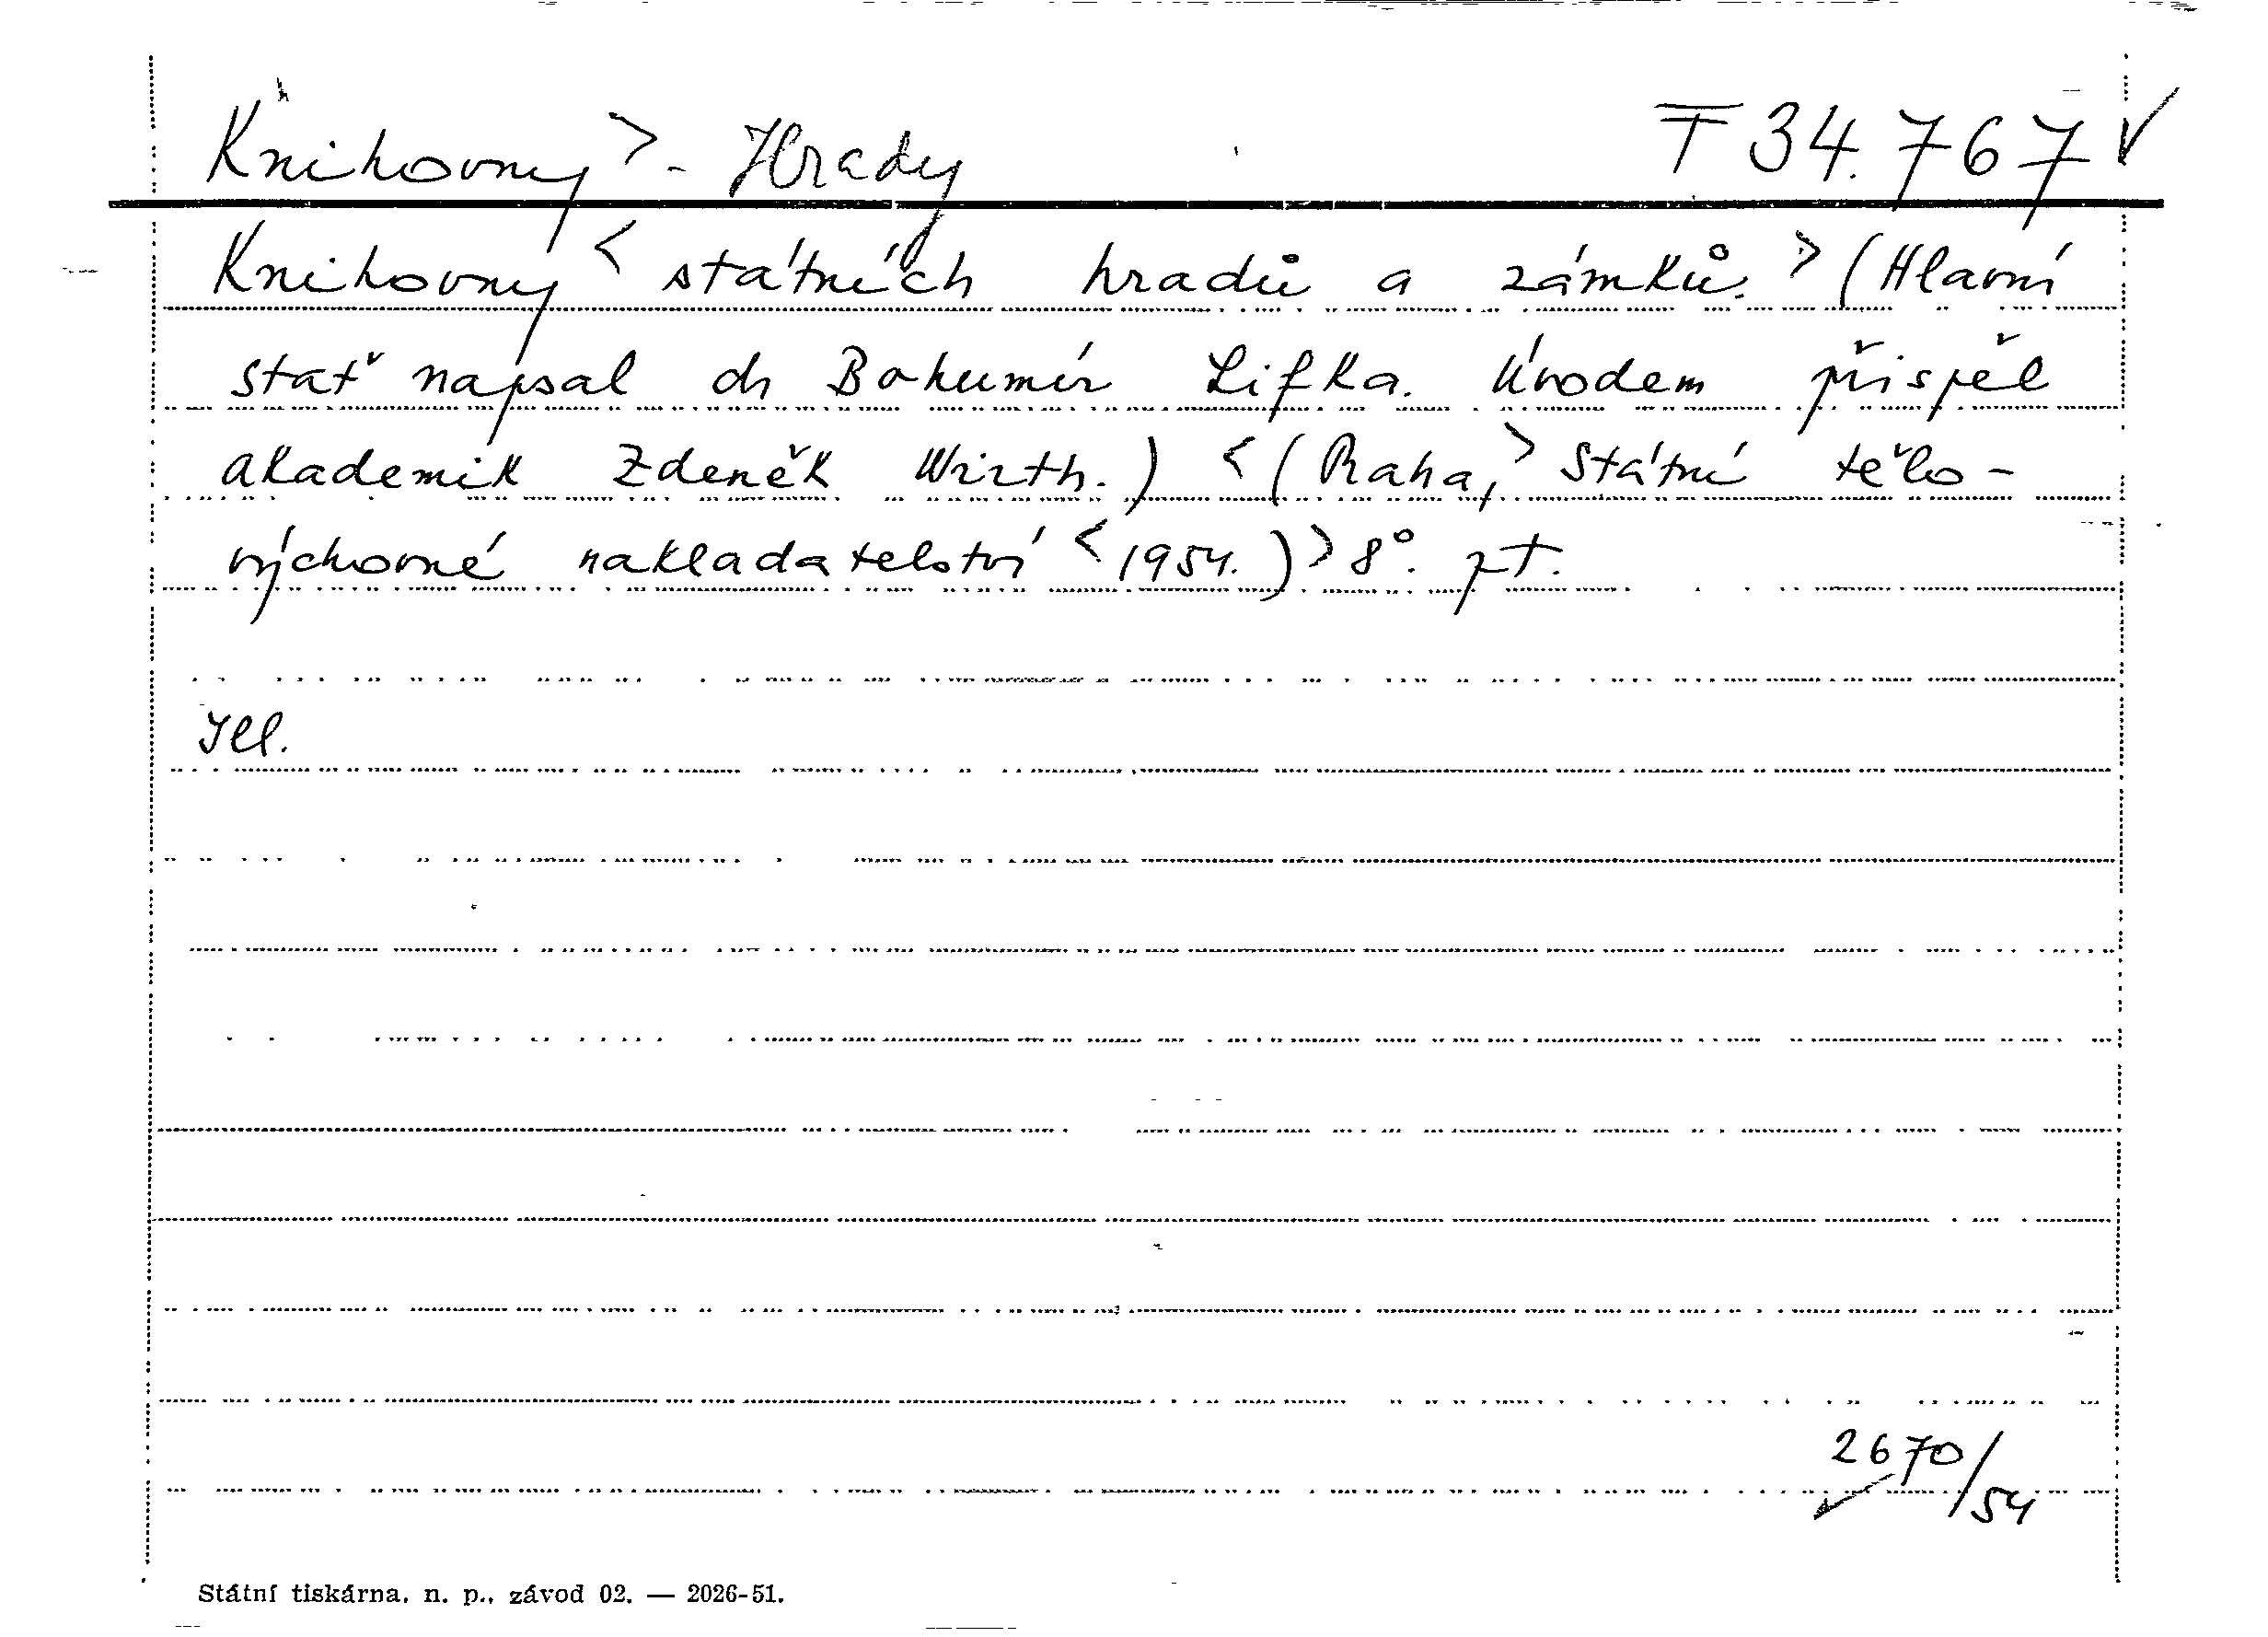 Knihovny > - Hrady T 34.767 ✓
Knihovny < státních hradů a zámků. > (Hlavní
stať napsal dr Bohumír Lifka. Úvodem přispěl
akademik Zdeněk Wirth.) < (Praha, > Státní tělo-
výchovné nakladatelství < 1954.) > 8°. pt.
Ill.
2670/54
Státní tiskárna, n. p., závod 02. — 2026-51.